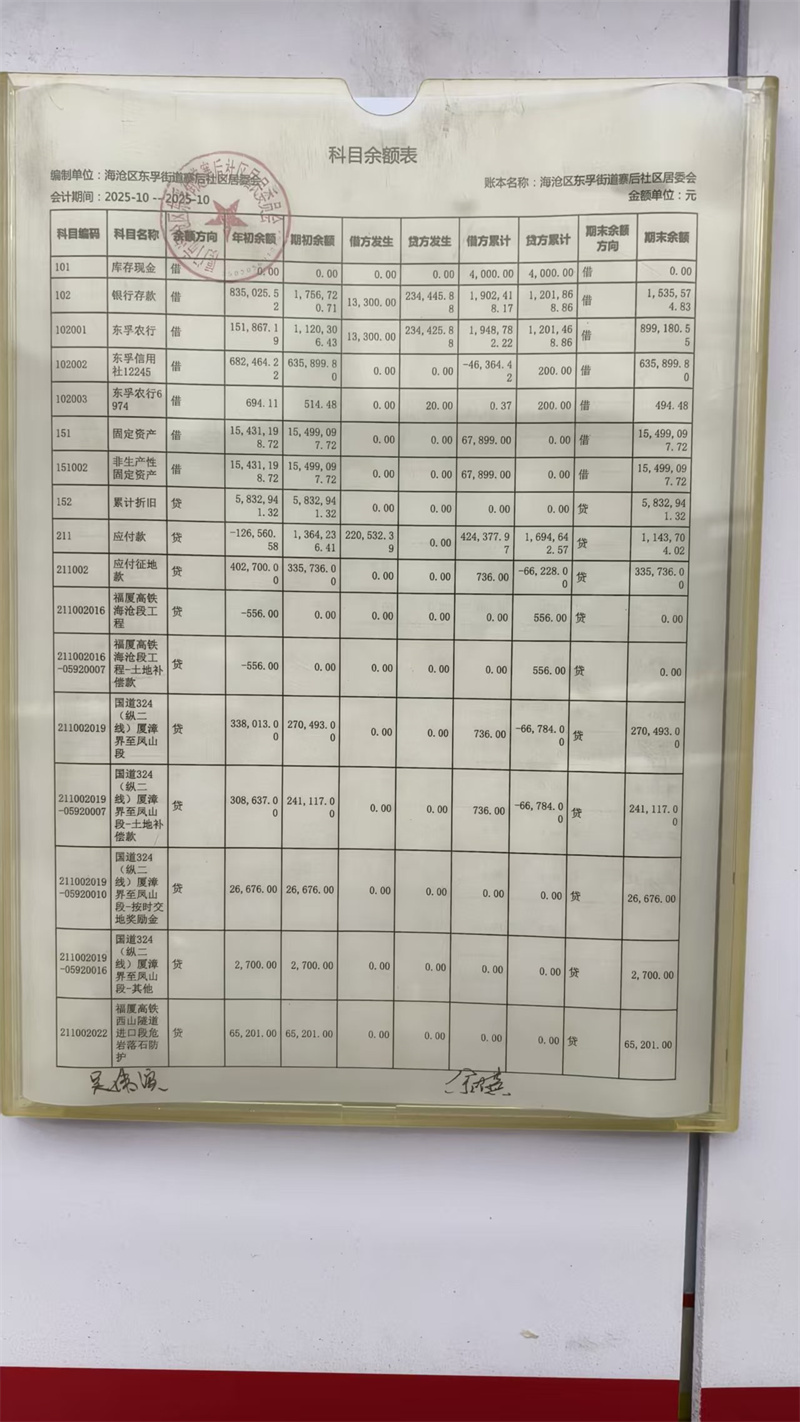 科目余额表
编制单位：海沧区东孚街道寨后社区居委会
账本名称：海沧区东孚街道寨后社区居委会
会计期间：2025-10 -- 2025-10
金额单位：元
科目编码 科目名称 余额方向 年初余额 期初余额 借方发生 贷方发生 借方累计 贷方累计 期末余额方向 期末余额
101 库存现金 借 0.00 0.00 0.00 0.00 4,000.00 4,000.00 借 0.00
102 银行存款 借 835,025.52 1,756,720.71 13,300.00 234,445.88 1,902,418.17 1,201,868.86 借 1,535,574.83
102001 东孚农行 借 151,867.19 1,120,306.43 13,300.00 234,425.88 1,948,782.22 1,201,468.86 借 899,180.55
102002 东孚信用社12245 借 682,464.22 635,899.80 0.00 0.00 -46,364.42 200.00 借 635,899.80
102003 东孚农行6974 借 694.11 514.48 0.00 20.00 0.37 200.00 借 494.48
151 固定资产 借 15,431,198.72 15,499,097.72 0.00 0.00 67,899.00 0.00 借 15,499,097.72
151002 非生产性固定资产 借 15,431,198.72 15,499,097.72 0.00 0.00 67,899.00 0.00 借 15,499,097.72
152 累计折旧 贷 5,832,941.32 5,832,941.32 0.00 0.00 0.00 0.00 贷 5,832,941.32
211 应付款 贷 -126,560.58 1,364,236.41 220,532.39 0.00 424,377.97 1,694,642.57 贷 1,143,704.02
211002 应付征地款 贷 402,700.00 335,736.00 0.00 0.00 736.00 -66,228.00 贷 335,736.00
211002016 福厦高铁海沧段工程 贷 -556.00 0.00 0.00 0.00 0.00 556.00 贷 0.00
211002016-05920007 福厦高铁海沧段工程-土地补偿款 贷 -556.00 0.00 0.00 0.00 0.00 556.00 贷 0.00
211002019 国道324（纵二线）厦漳界至凤山段 贷 338,013.00 270,493.00 0.00 0.00 736.00 -66,784.00 贷 270,493.00
211002019-05920007 国道324（纵二线）厦漳界至凤山段-土地补偿款 贷 308,637.00 241,117.00 0.00 0.00 736.00 -66,784.00 贷 241,117.00
211002019-05920010 国道324（纵二线）厦漳界至凤山段-按时交地奖励金 贷 26,676.00 26,676.00 0.00 0.00 0.00 0.00 贷 26,676.00
211002019-05920016 国道324（纵二线）厦漳界至凤山段-其他 贷 2,700.00 2,700.00 0.00 0.00 0.00 0.00 贷 2,700.00
211002022 福厦高铁西山隧道进口段危岩落石防护 贷 65,201.00 65,201.00 0.00 0.00 0.00 0.00 贷 65,201.00